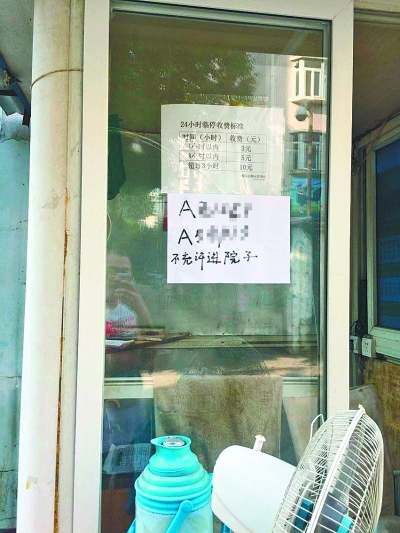 24小时临停收费标准
时间（小时） 收费（元）
小时以内 3元
小时以内 5元
超过 小时 10元
A
A
不允许进院子